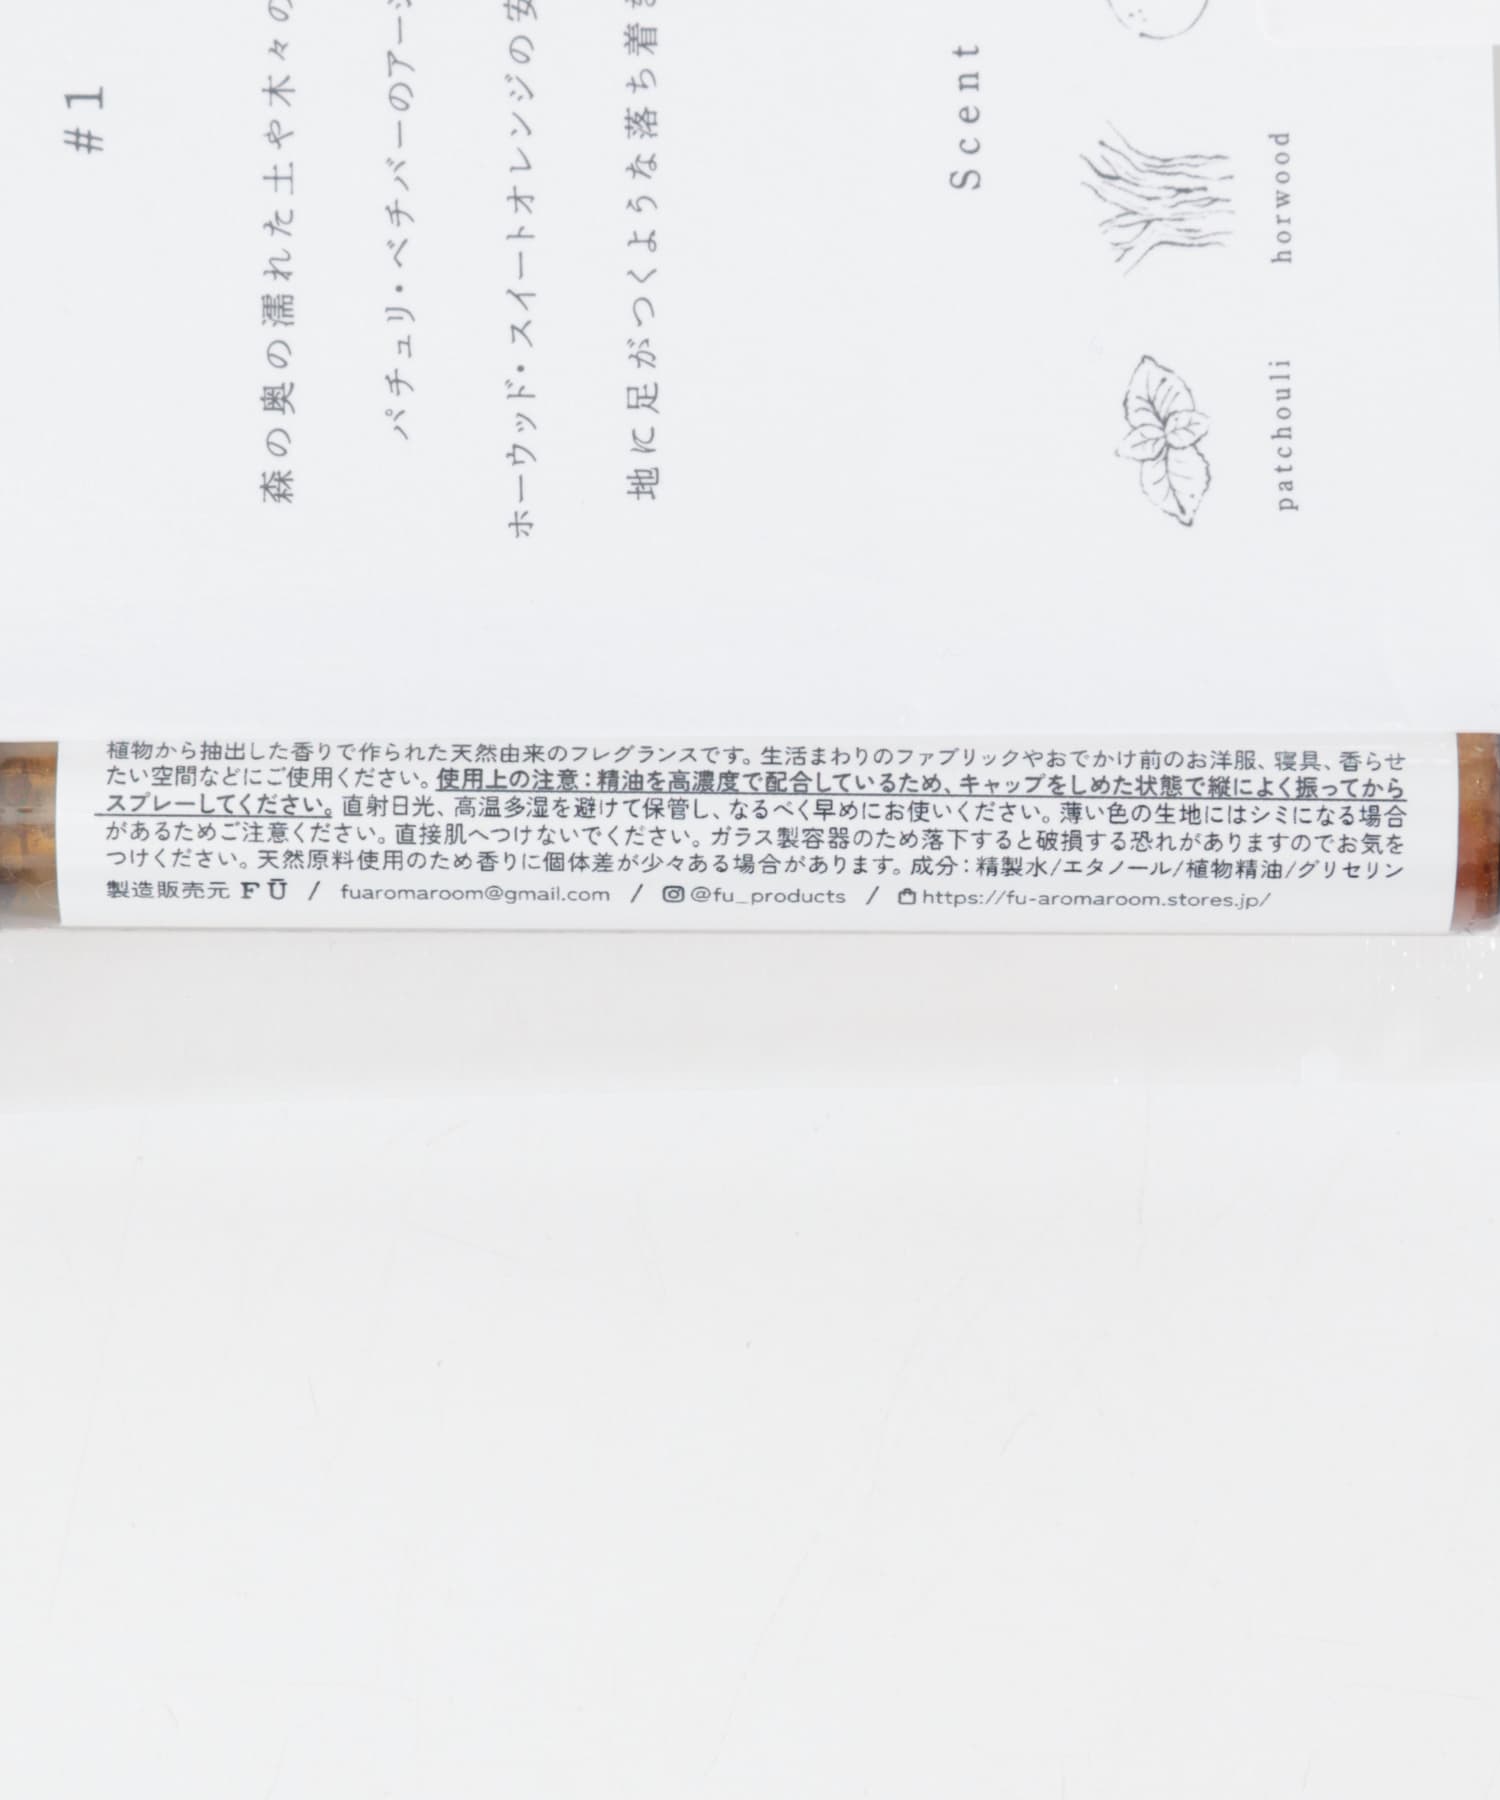 #1
森の奥の濡れた土や木々の
パチュリ・ベチバーのアー
ホーウッド・スイートオレンジの安
地に足がつくような落ち着
Scent
horwood
patchouli
植物から抽出した香りで作られた天然由来のフレグランスです。生活まわりのファブリックやおでかけ前のお洋服、寝具、香らせ
たい空間などにご使用ください。使用上の注意：精油を高濃度で配合しているため、キャップをしめた状態で縦によく振ってから
スプレーしてください。直射日光、高温多湿を避けて保管し、なるべく早めにお使いください。薄い色の生地にはシミになる場合
があるためご注意ください。直接肌へつけないでください。ガラス製容器のため落下すると破損する恐れがありますのでお気を
つけください。天然原料使用のため香りに個体差が少々ある場合があります。成分：精製水/エタノール/植物精油/グリセリン
製造販売元 FŪ / fuaromaroom@gmail.com / @fu_products / https://fu-aromaroom.stores.jp/